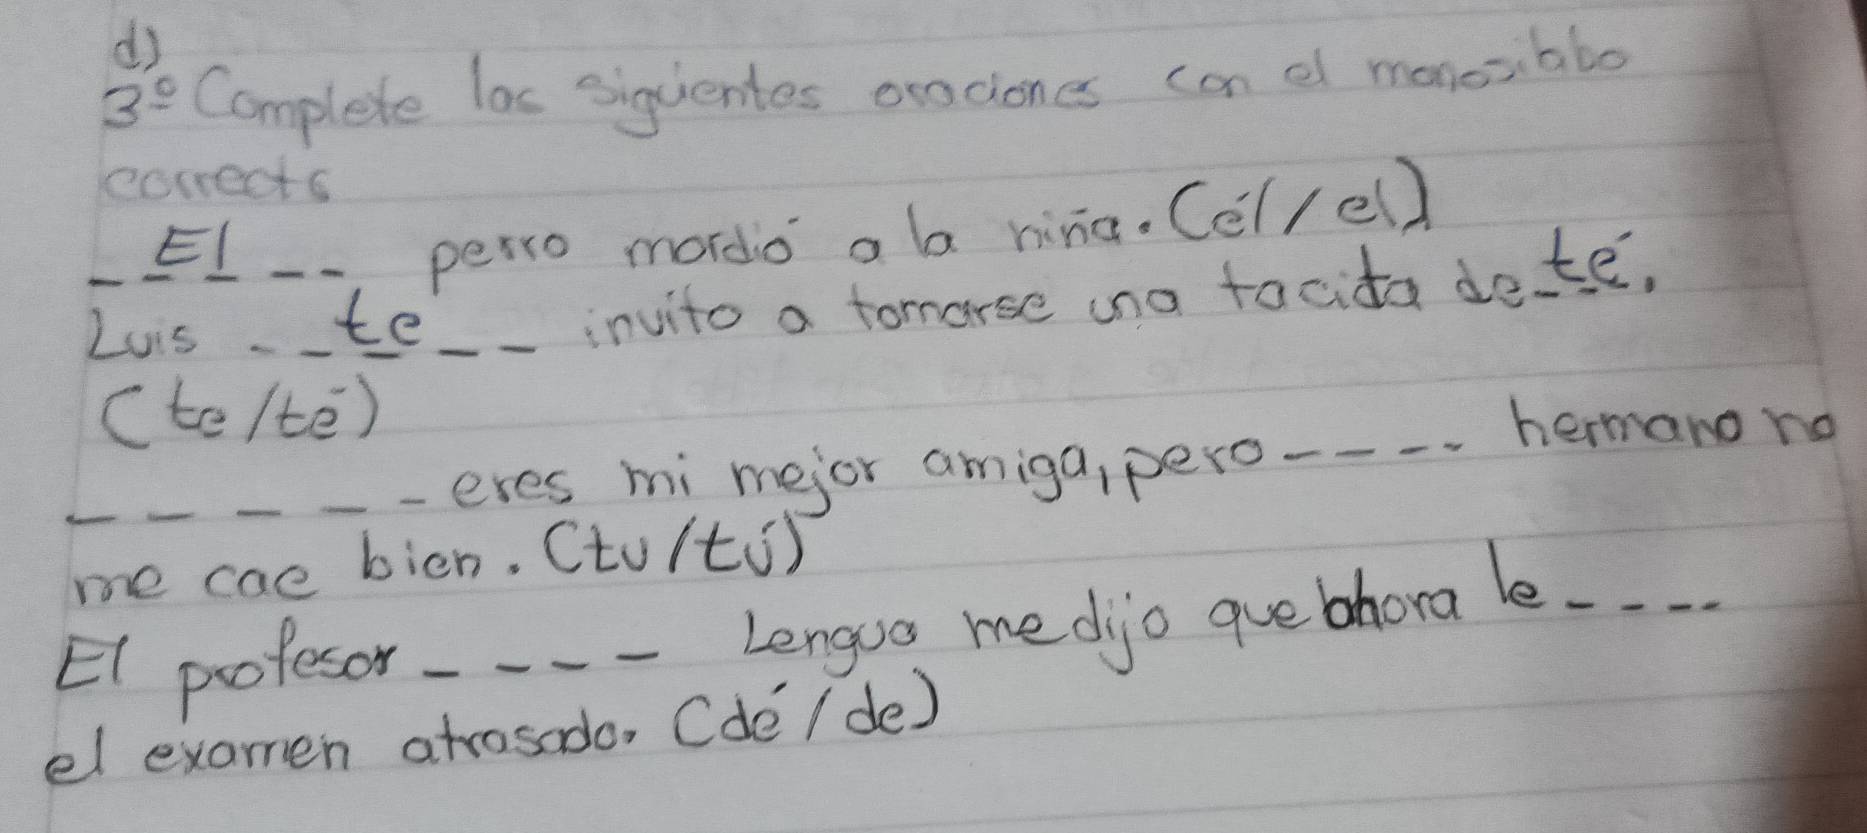 d)
3º Complete las siguientes oraciones con el monosilabo
correcto
__El__ perro mordió a la niña. (él/el)
Luis __te__ invito a tomarse una tacita de té.
(te/té)
_____ eres mi mejor amiga, pero ---- hermano no
me cae bien. (tu/tú)
El profesor ---- Lengua me dijo que ahora le ----
el examen atrasado. (dé/de)